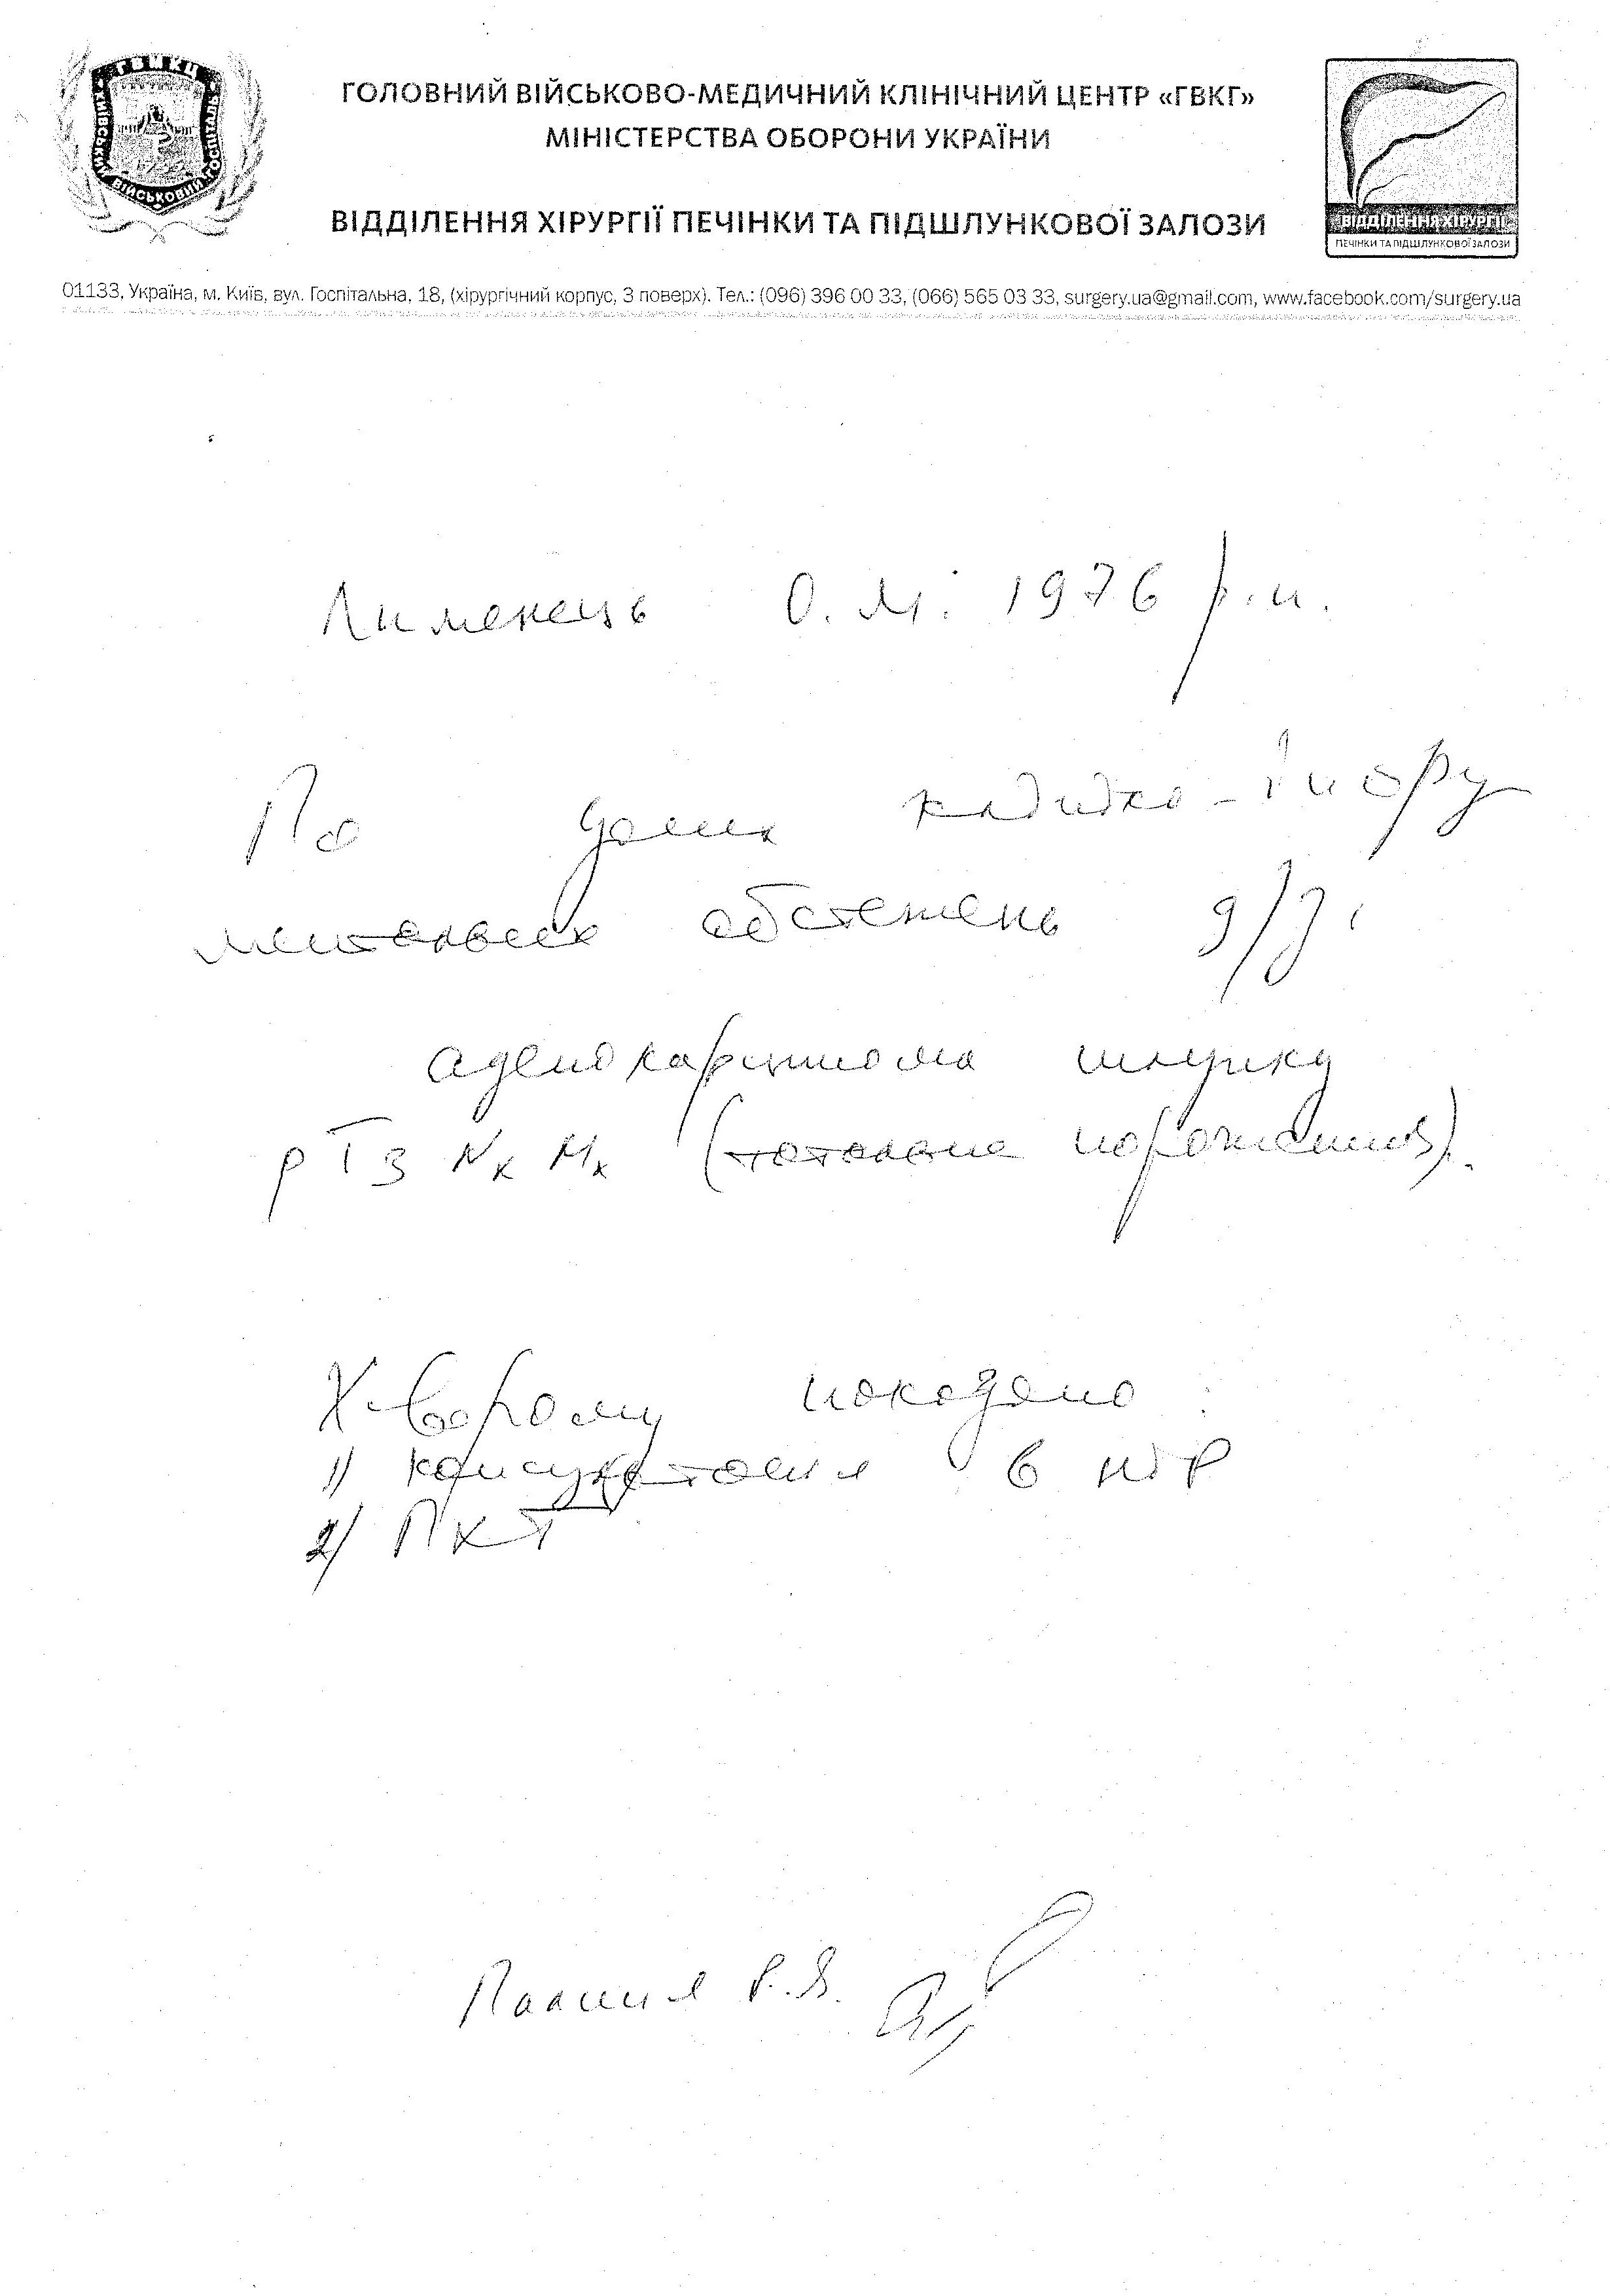 ГВМКЦ
ВІЙСЬКОВИЙ ГОСПІТАЛЬ
ГОЛОВНИЙ ВІЙСЬКОВО-МЕДИЧНИЙ КЛІНІЧНИЙ ЦЕНТР «ГВКГ»
МІНІСТЕРСТВА ОБОРОНИ УКРАЇНИ
ВІДДІЛЕННЯ ХІРУРГІЇ ПЕЧІНКИ ТА ПІДШЛУНКОВОЇ ЗАЛОЗИ
ВІДДІЛЕННЯ ХІРУРГІЇ
ПЕЧІНКИ ТА ПІДШЛУНКОВОЇ ЗАЛОЗИ
01133, Україна, м. Київ, вул. Госпітальна, 18, (хірургічний корпус, 3 поверх). Тел.: (096) 396 00 33, (066) 565 03 33, surgery.ua@gmail.com, www.facebook.com/surgery.ua
О. М. 1976 р.н.
По даних клініко-інстру
ментальних обстежень д/з:
аденокарцинома шлунку
рТ3 Nx Mx (тотальне пораження).
Х-ворому показано:
1) консультація в
2) ПХТ